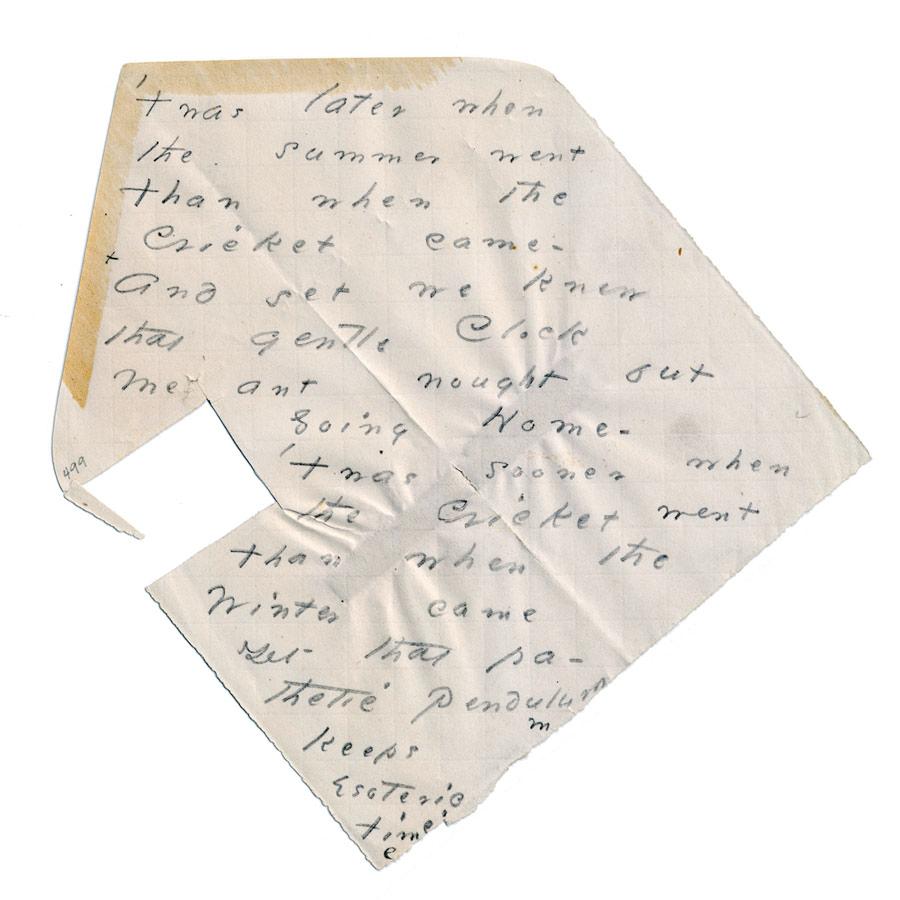 'Twas later when
the summer went
than when the
Cricket came -
+
And yet we knew
that gentle Clock
meant nought but
Going Home -
'Twas sooner when
the Cricket went
than when the
Winter came
Yet that pa-
thetic Pendulum
m
keeps
Esoteric
time
e
499